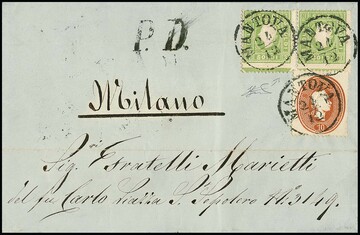 P. D.
MANTOVA
MANTOVA
MANTOVA
Milano
Sig. Fratelli Marietti
del fu Carlo Piazza S. Sepolcro N. 3149.